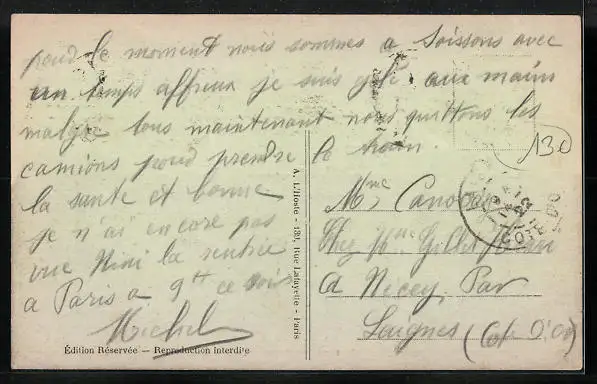 poud le moment nous sommes a Soissons avec
un temps affreux je suis gelé aux mains
malgre tous maintenant nous quittons les
camions poud prendre le train.
la santé et bonne
je n'ai encore pas
vue Nini la rentrée
a Paris a 9H ce soir
Michel
Mme
Chez Mme
à Nicey, Par
Laignes (Cote D'Or)
130
22
COTE D'O
A. L'Hoste - 131, Rue Lafayette - Paris
Édition Réservée — Reproduction interdite